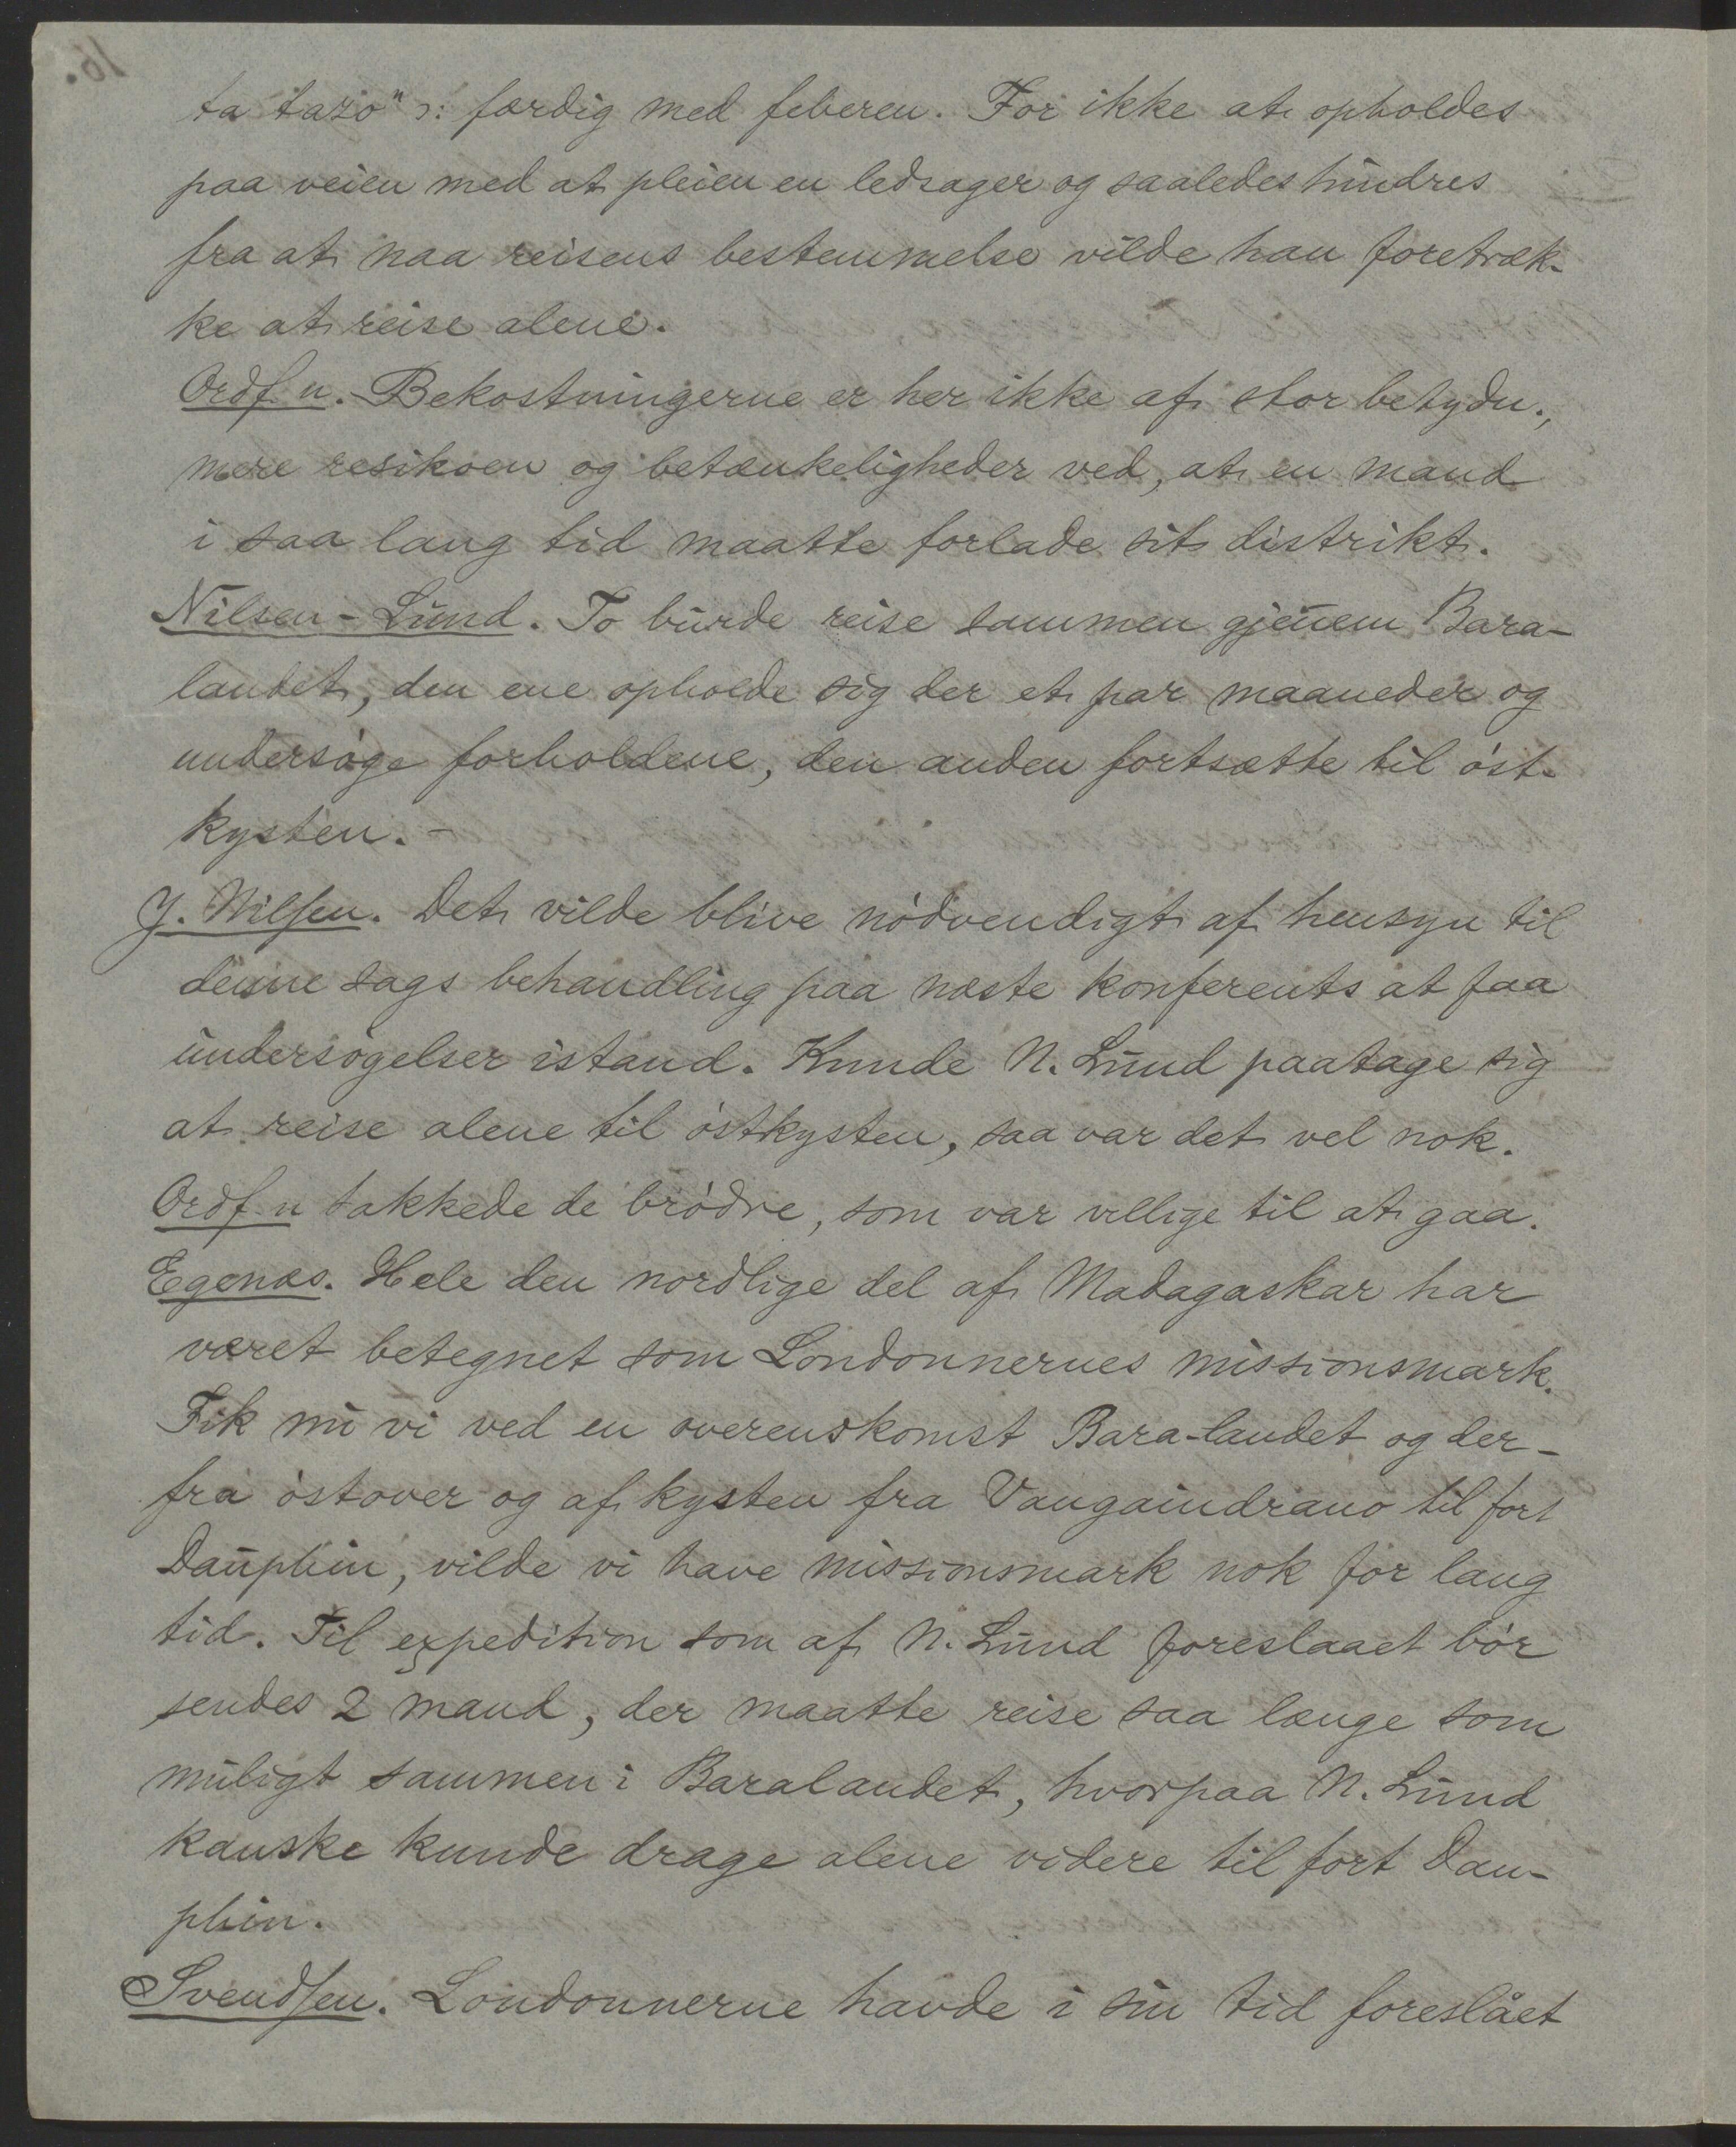 ta tazo" ɔ: færdig med feberen. For ikke at opholdes
paa veien med at pleien en ledsager og saaledes hindres
fra at naa reisens bestemmelse vilde han foretræk-
ke at reise alene.
Ordf n. Bekostningerne er her ikke af stor betydn.,
mere resikoen og betænkeligheder ved, at en mand
i saa lang tid maatte forlade sit distrikt.
Nilsen-Lund. To burde reise sammen gjenem Bara-
landet, den ene opholde sig der et par maaneder og
undersøge forholdene, den anden fortsætte til øst-
kysten. -
J. Nilsen. Det vilde blive nødvendigt af hensyn til
denne sags behandling paa næste konferents at faa
undersøgelser istand. Kunde N. Lund paatage sig
at reise alene til østkysten, saa var det vel nok.
Ordf n takkede de brødre, som var villige til at gaa.
Egenæs. Hele den nordlige del af Madagaskar har
været betegnet som Londonnernes missionsmark.
Fik nu vi ved en overenskomst Bara-landet og der-
fra østover og af kysten fra Vangaindrano til fort
Dauphin, vilde vi have missionsmark nok for lang
tid. Til expedition som af N. Lund foreslaaet bør
sendes 2 mand, der maatte reise saa længe som
muligt sammen i Baralandet, hvorpaa N. Lund
kanske kunde drage alene videre til fort Dau-
phin.
Svendsen. Londonnerne havde i sin tid foreslået